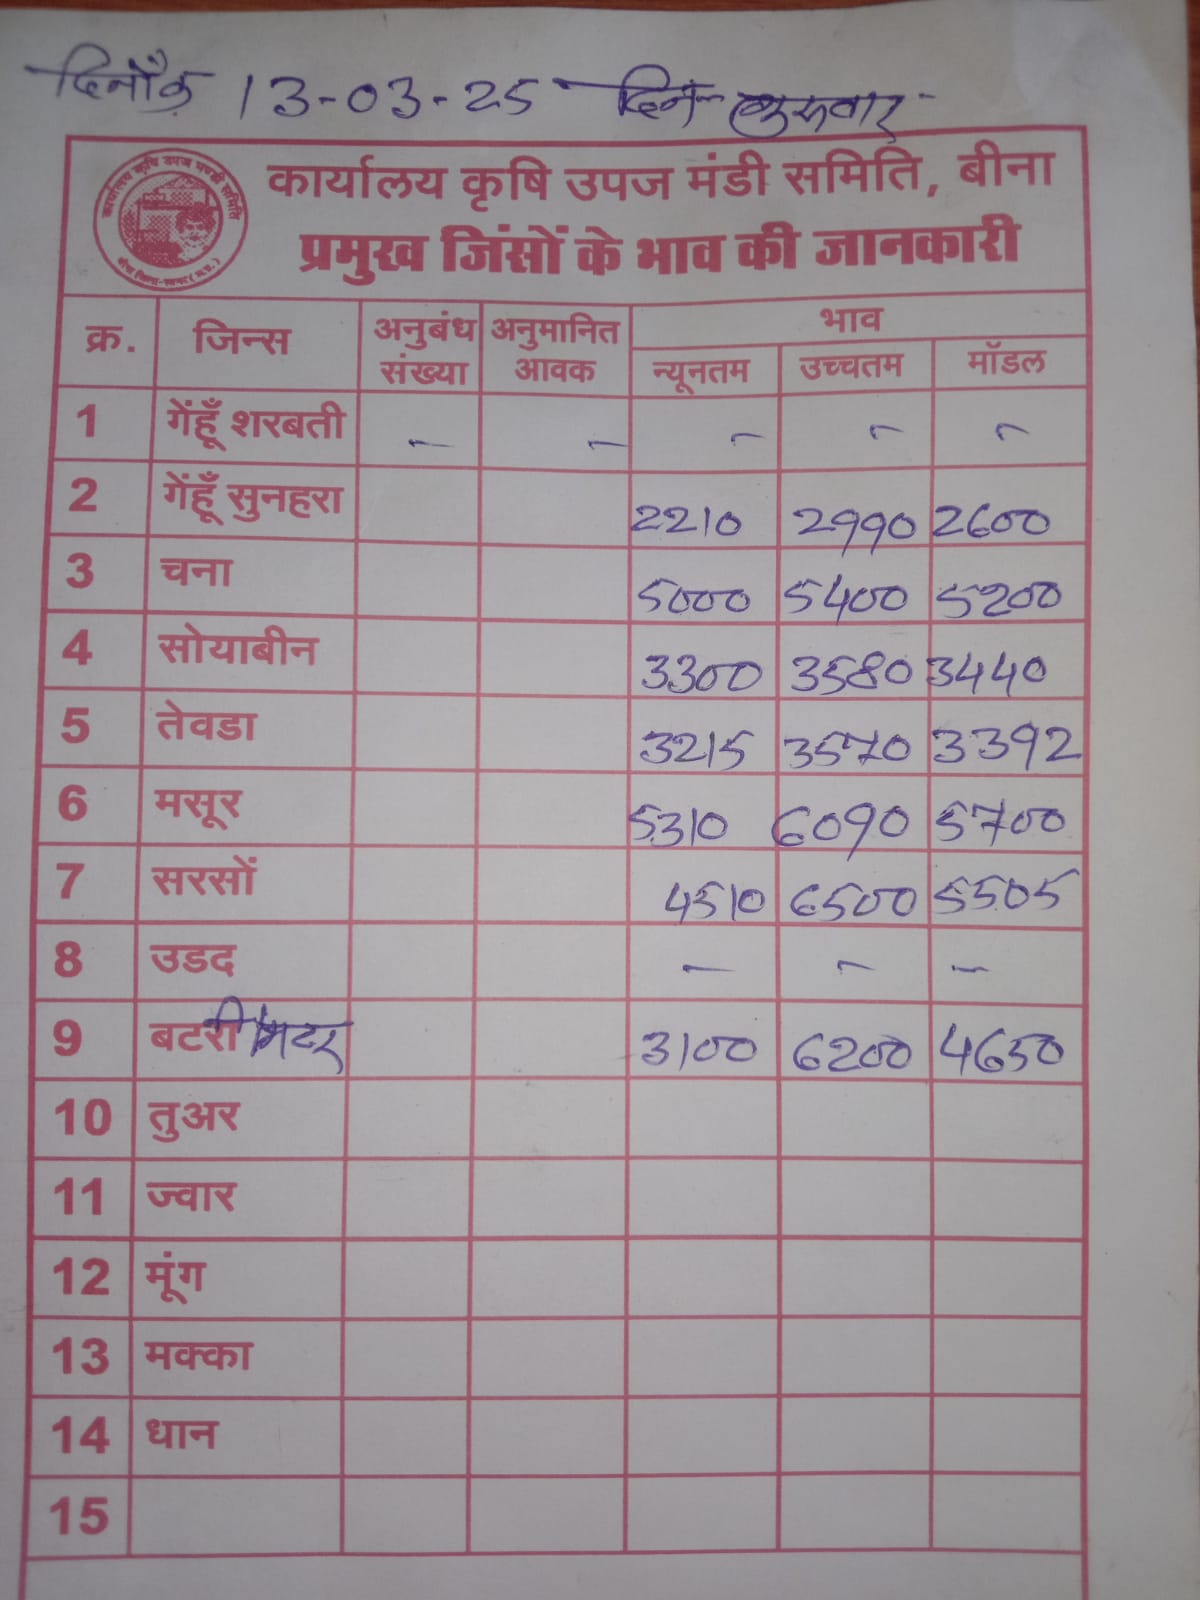 दिनाँक 13-03-25 दिन- गुरूवार
कार्यालय कृषि उपज मण्डी समिति
कार्यालय कृषि उपज मंडी समिति, बीना
प्रमुख जिंसों के भाव की जानकारी
क्र. जिन्स अनुबंध संख्या अनुमानित आवक भाव
न्यूनतम उच्चतम मॉडल
1 गेंहूँ शरबती - - - - -
2 गेंहूँ सुनहरा 2210 2990 2600
3 चना 5000 5400 5200
4 सोयाबीन 3300 3580 3440
5 तेवडा 3215 3570 3392
6 मसूर 5310 6090 5700
7 सरसों 4510 6500 5505
8 उडद - - -
9 बटरी/मटर 3100 6200 4650
10 तुअर
11 ज्वार
12 मूंग
13 मक्का
14 धान
15